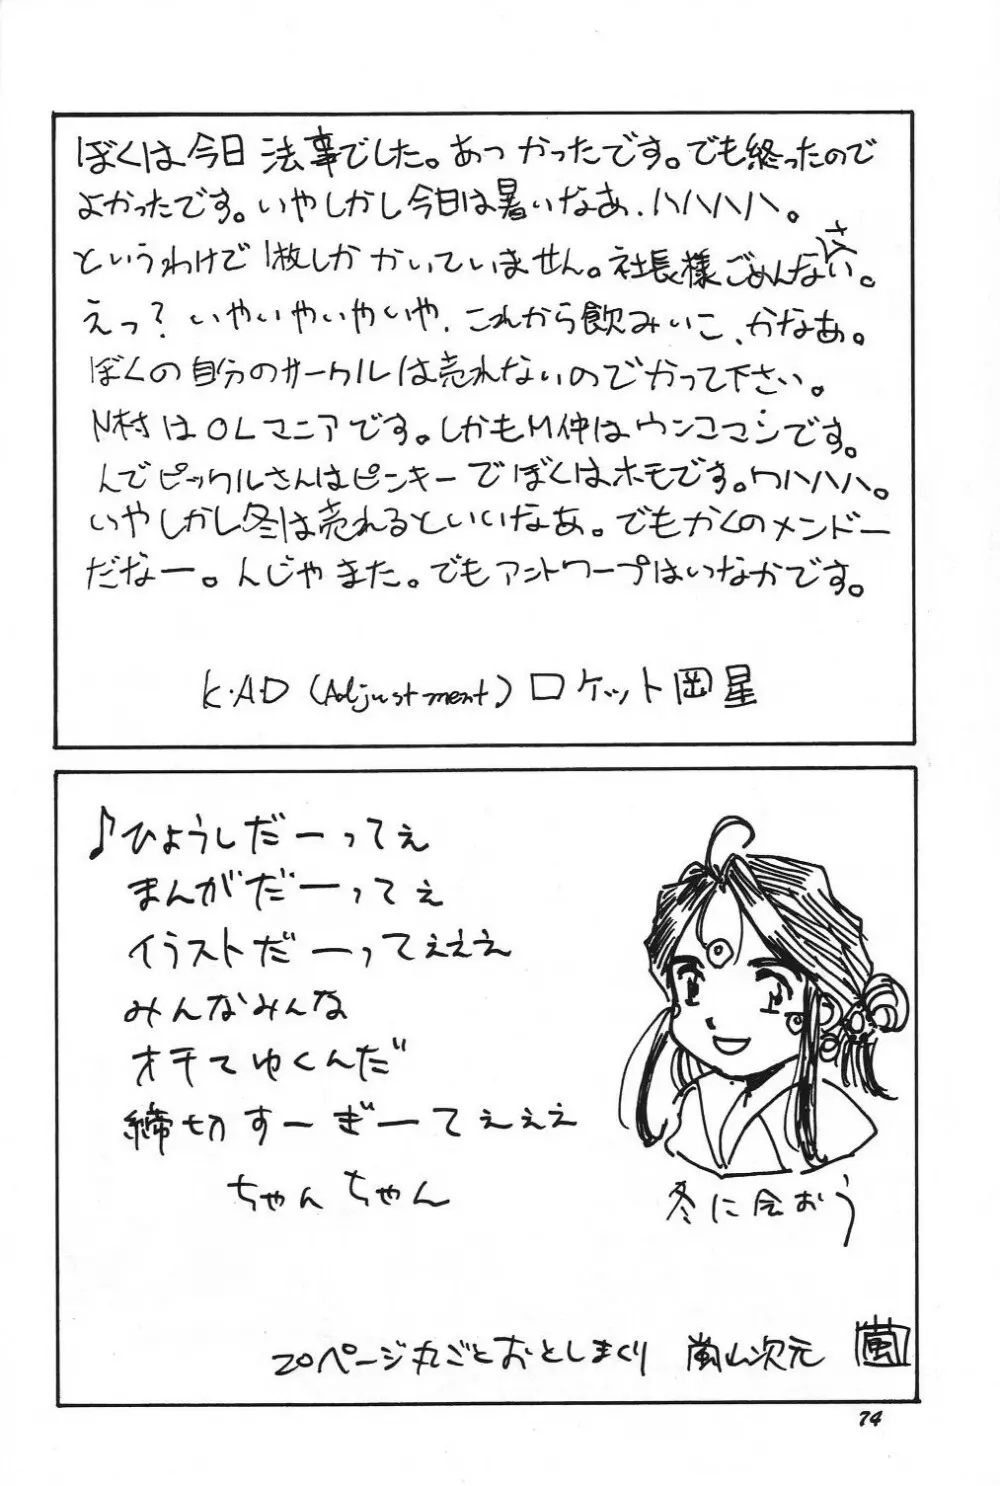 ぼくは今日法事でした。あつかったです。でも終ったので
よかったです。いやしかし今日は暑いなあ、ハハハハ。
というわけで1枚しかかいていません。社長様ごめんなさい。
えっ?いやいやいやいや、これから飲みいこ、かなあ。
ぼくの自分のサークルは売れないのでかって下さい。
N村はOLマニアです。しかもM仲はウンコマンです。
んでピックルさんはピンキーでぼくはホモです。ワハハハ。
いやしかし冬は売れるといいなあ。でもかくのメンドー
だなー。んじゃまた。でもアントワープはいなかです。
K・A・D (Adjustment) ロケット岡星
♪ひょうしだーってぇ
まんがだーってぇ
イラストだーってぇぇぇ
みんなみんな
オチてゆくんだ
締切すーぎーてぇぇぇ
ちゃんちゃん
冬に会おう
20ページ丸ごとおとしまくり 嵐山次元 嵐
74